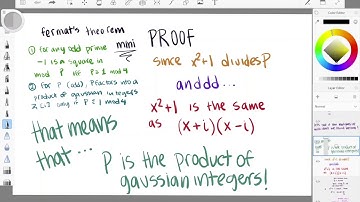 fermat's theorem
mini
① for any odd prime
-1 is a square in
mod P iff P≡1 mod 4
② for P (odd), P factors into a
product of gaussian integers
iff P≡1 mod 4
that means
that ...
PROOF
since x²+1 divides P
anddd...
x²+1 is the same
as (x+i)(x-i)
P is the product of
gaussian integers!
Layer Editor